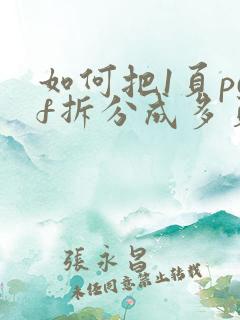 如何把1頁pd
f拆分成多
張永昌
未经同意禁止转载